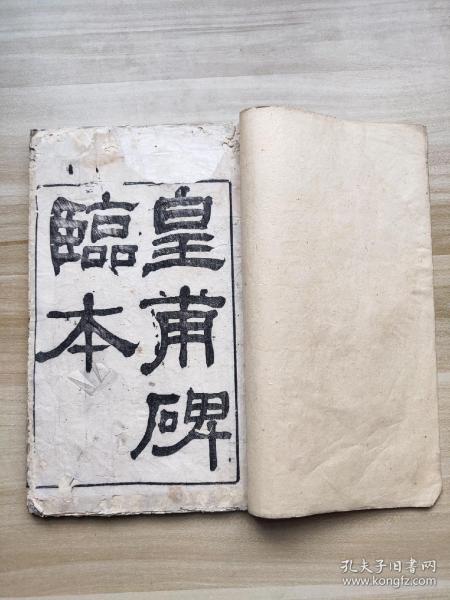 皇甫碑
臨本
孔夫子旧书网
www.kongfz.com